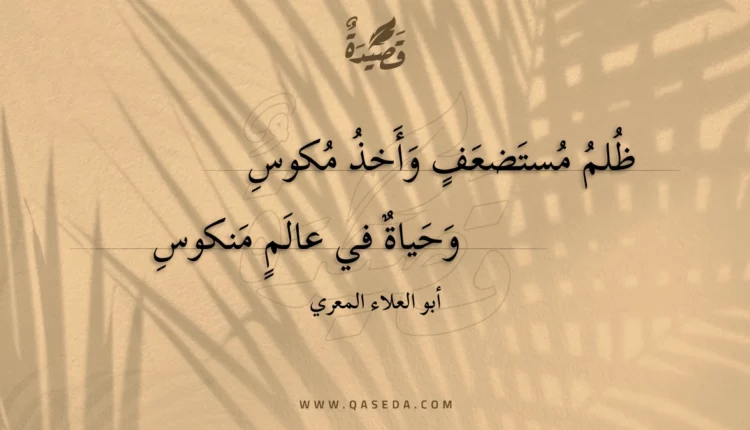 قَصِيْدَةٌ
ظُلمُ مُستَضعَفٍ وَأَخذُ مُكوسِ
وَحَياةٌ في عالَمٍ مَنكوسِ
أبو العلاء المعري
WWW.QASEDA.COM